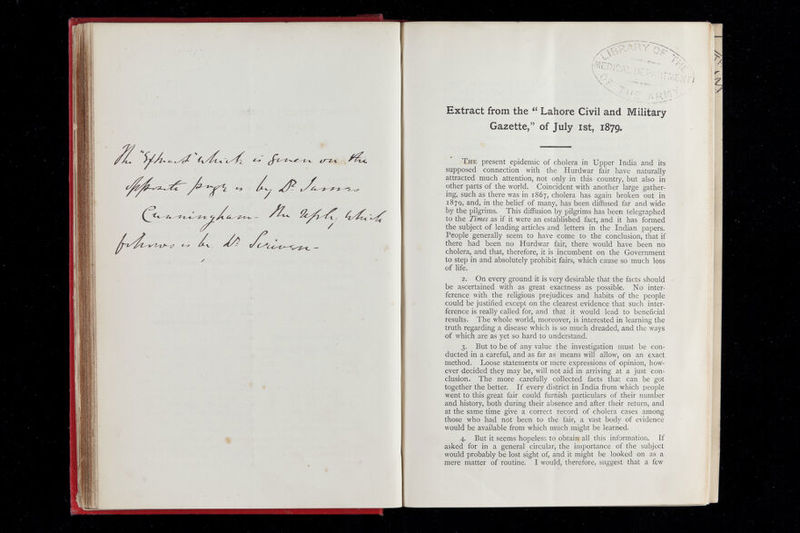 The "Extract" which is given on the
opposite page is by Dr James
Cunningham - The reply, which
follows is by Dr Scriven -
LIBRARY OF THE
MEDICAL DEPARTMENT
OF THE ARMY
Extract from the “ Lahore Civil and Military
Gazette,” of July 1st, 1879.
The present epidemic of cholera in Upper India and its
supposed connection with the Hurdwar fair have naturally
attracted much attention, not only in this country, but also in
other parts of the world. Coincident with another large gather-
ing, such as there was in 1867, cholera has again broken out in
1879, and, in the belief of many, has been diffused far and wide
by the pilgrims. This diffusion by pilgrims has been telegraphed
to the Times as if it were an established fact, and it has formed
the subject of leading articles and letters in the Indian papers.
People generally seem to have come to the conclusion, that if
there had been no Hurdwar fair, there would have been no
cholera, and that, therefore, it is incumbent on the Government
to step in and absolutely prohibit fairs, which cause so much loss
of life.
2. On every ground it is very desirable that the facts should
be ascertained with as great exactness as possible. No inter-
ference with the religious prejudices and habits of the people
could be justified except on the clearest evidence that such inter-
ference is really called for, and that it would lead to beneficial
results. The whole world, moreover, is interested in learning the
truth regarding a disease which is so much dreaded, and the ways
of which are as yet so hard to understand.
3. But to be of any value the investigation must be con-
ducted in a careful, and as far as means will allow, on an exact
method. Loose statements or mere expressions of opinion, how-
ever decided they may be, will not aid in arriving at a just con-
clusion. The more carefully collected facts that can be got
together the better. If every district in India from which people
went to this great fair could furnish particulars of their number
and history, both during their absence and after their return, and
at the same time give a correct record of cholera cases among
those who had not been to the fair, a vast body of evidence
would be available from which much might be learned.
4. But it seems hopeless to obtain all this information. If
asked for in a general circular, the importance of the subject
would probably be lost sight of, and it might be looked on as a
mere matter of routine. I would, therefore, suggest that a few